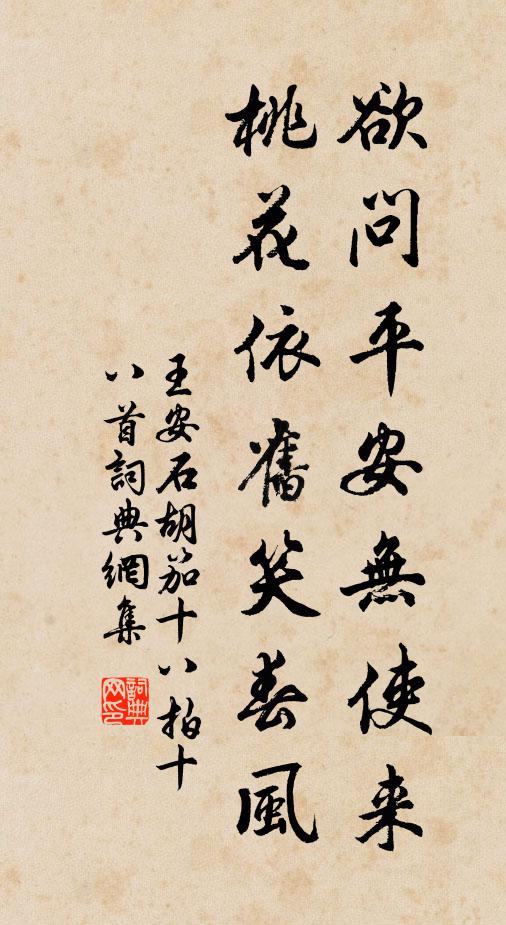 欲問平安無使来
桃花依舊笑春風
王安石胡笳十八拍十
八首詞典網集
詞典
网印